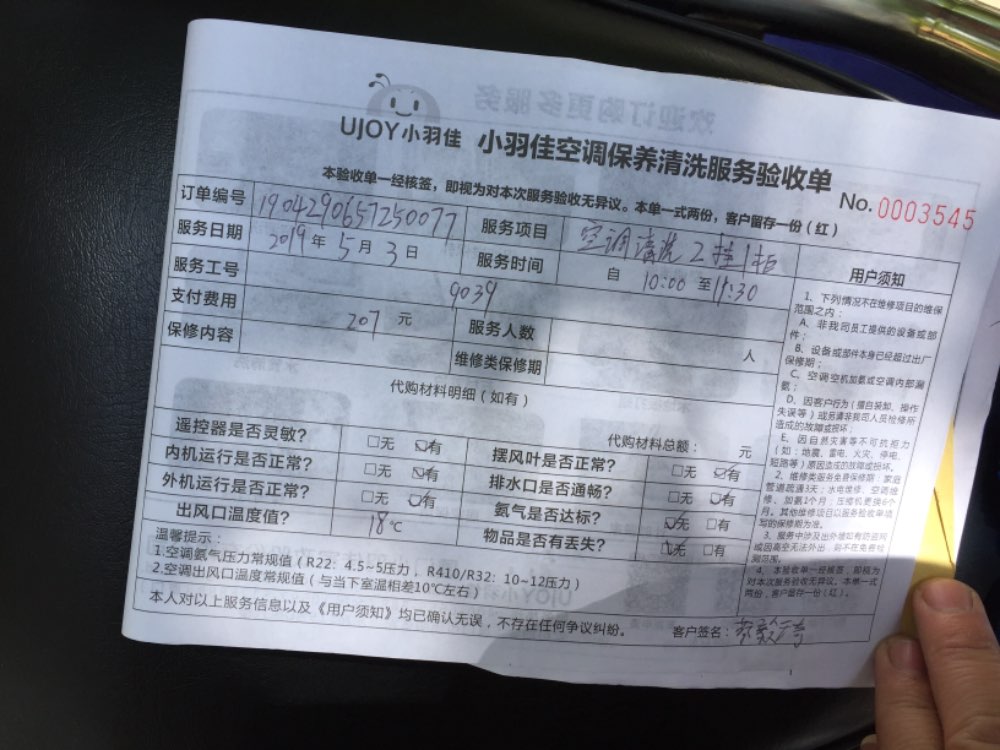 UJOY小羽佳 小羽佳空调保养清洗服务验收单
本验收单一经核签，即视为对本次服务验收无异议。本单一式两份，客户留存一份（红）
No. 0003545
订单编号 1904290657250077 服务项目 空调清洗2挂1柜
服务日期 2019年5月3日 服务时间 自 10:00 至11:30
服务工号 9039
支付费用 207 元 服务人数 人
保修内容 维修类保修期
代购材料明细（如有）
代购材料总额： 元
遥控器是否灵敏？ □无 ☑有 摆风叶是否正常？ □无 ☑有
内机运行是否正常？ □无 ☑有 排水口是否通畅？ □无 ☑有
外机运行是否正常？ □无 ☑有 氨气是否达标？ ☑无 □有
出风口温度值？ 18℃ 物品是否有丢失？ ☑无 □有
温馨提示：
1.空调氨气压力常规值（R22：4.5~5压力，R410/R32：10~12压力）
2.空调出风口温度常规值（与当下室温相差10℃左右）
本人对以上服务信息以及《用户须知》均已确认无误，不存在任何争议纠纷。 客户签名：
用户须知
1、下列情况不在维修项目的维保
范围之内：
A、非我司员工提供的设备或部
件；
B、设备或部件本身已经超过出厂
保修期；
C、空调空机加氨或空调内部漏
氨；
D、因客户行为（擅自装卸、操作
失误等）或另请非我司人员检修所
造成的故障或损坏；
E、因自然灾害等不可抗拒力
（如：地震、雷电、火灾、停电、
短路等）原因造成的故障或损坏。
2、维修类服务免费保修期：家庭
管道疏通3天；水电维修、空调维
修、加氨1个月；压缩机更换6个
月。其他维修项目以服务验收单填
写的保修期为准。
3、服务中涉及出外墙如有防盗网
或因高空无法外出，则不在免费检
测范围。
4、本验收单一经核签，即视为
对本次服务验收无异议。本单一式
两份，客户留存一份（红）。
欢迎订购更多服务